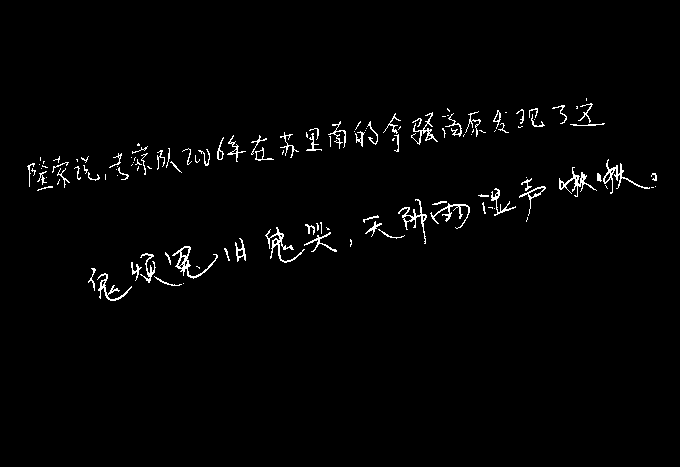 隆索说,考察队2006年在苏里南的拿骚高原发现了这
鬼烦冤旧鬼哭,天阴雨湿声啾啾。